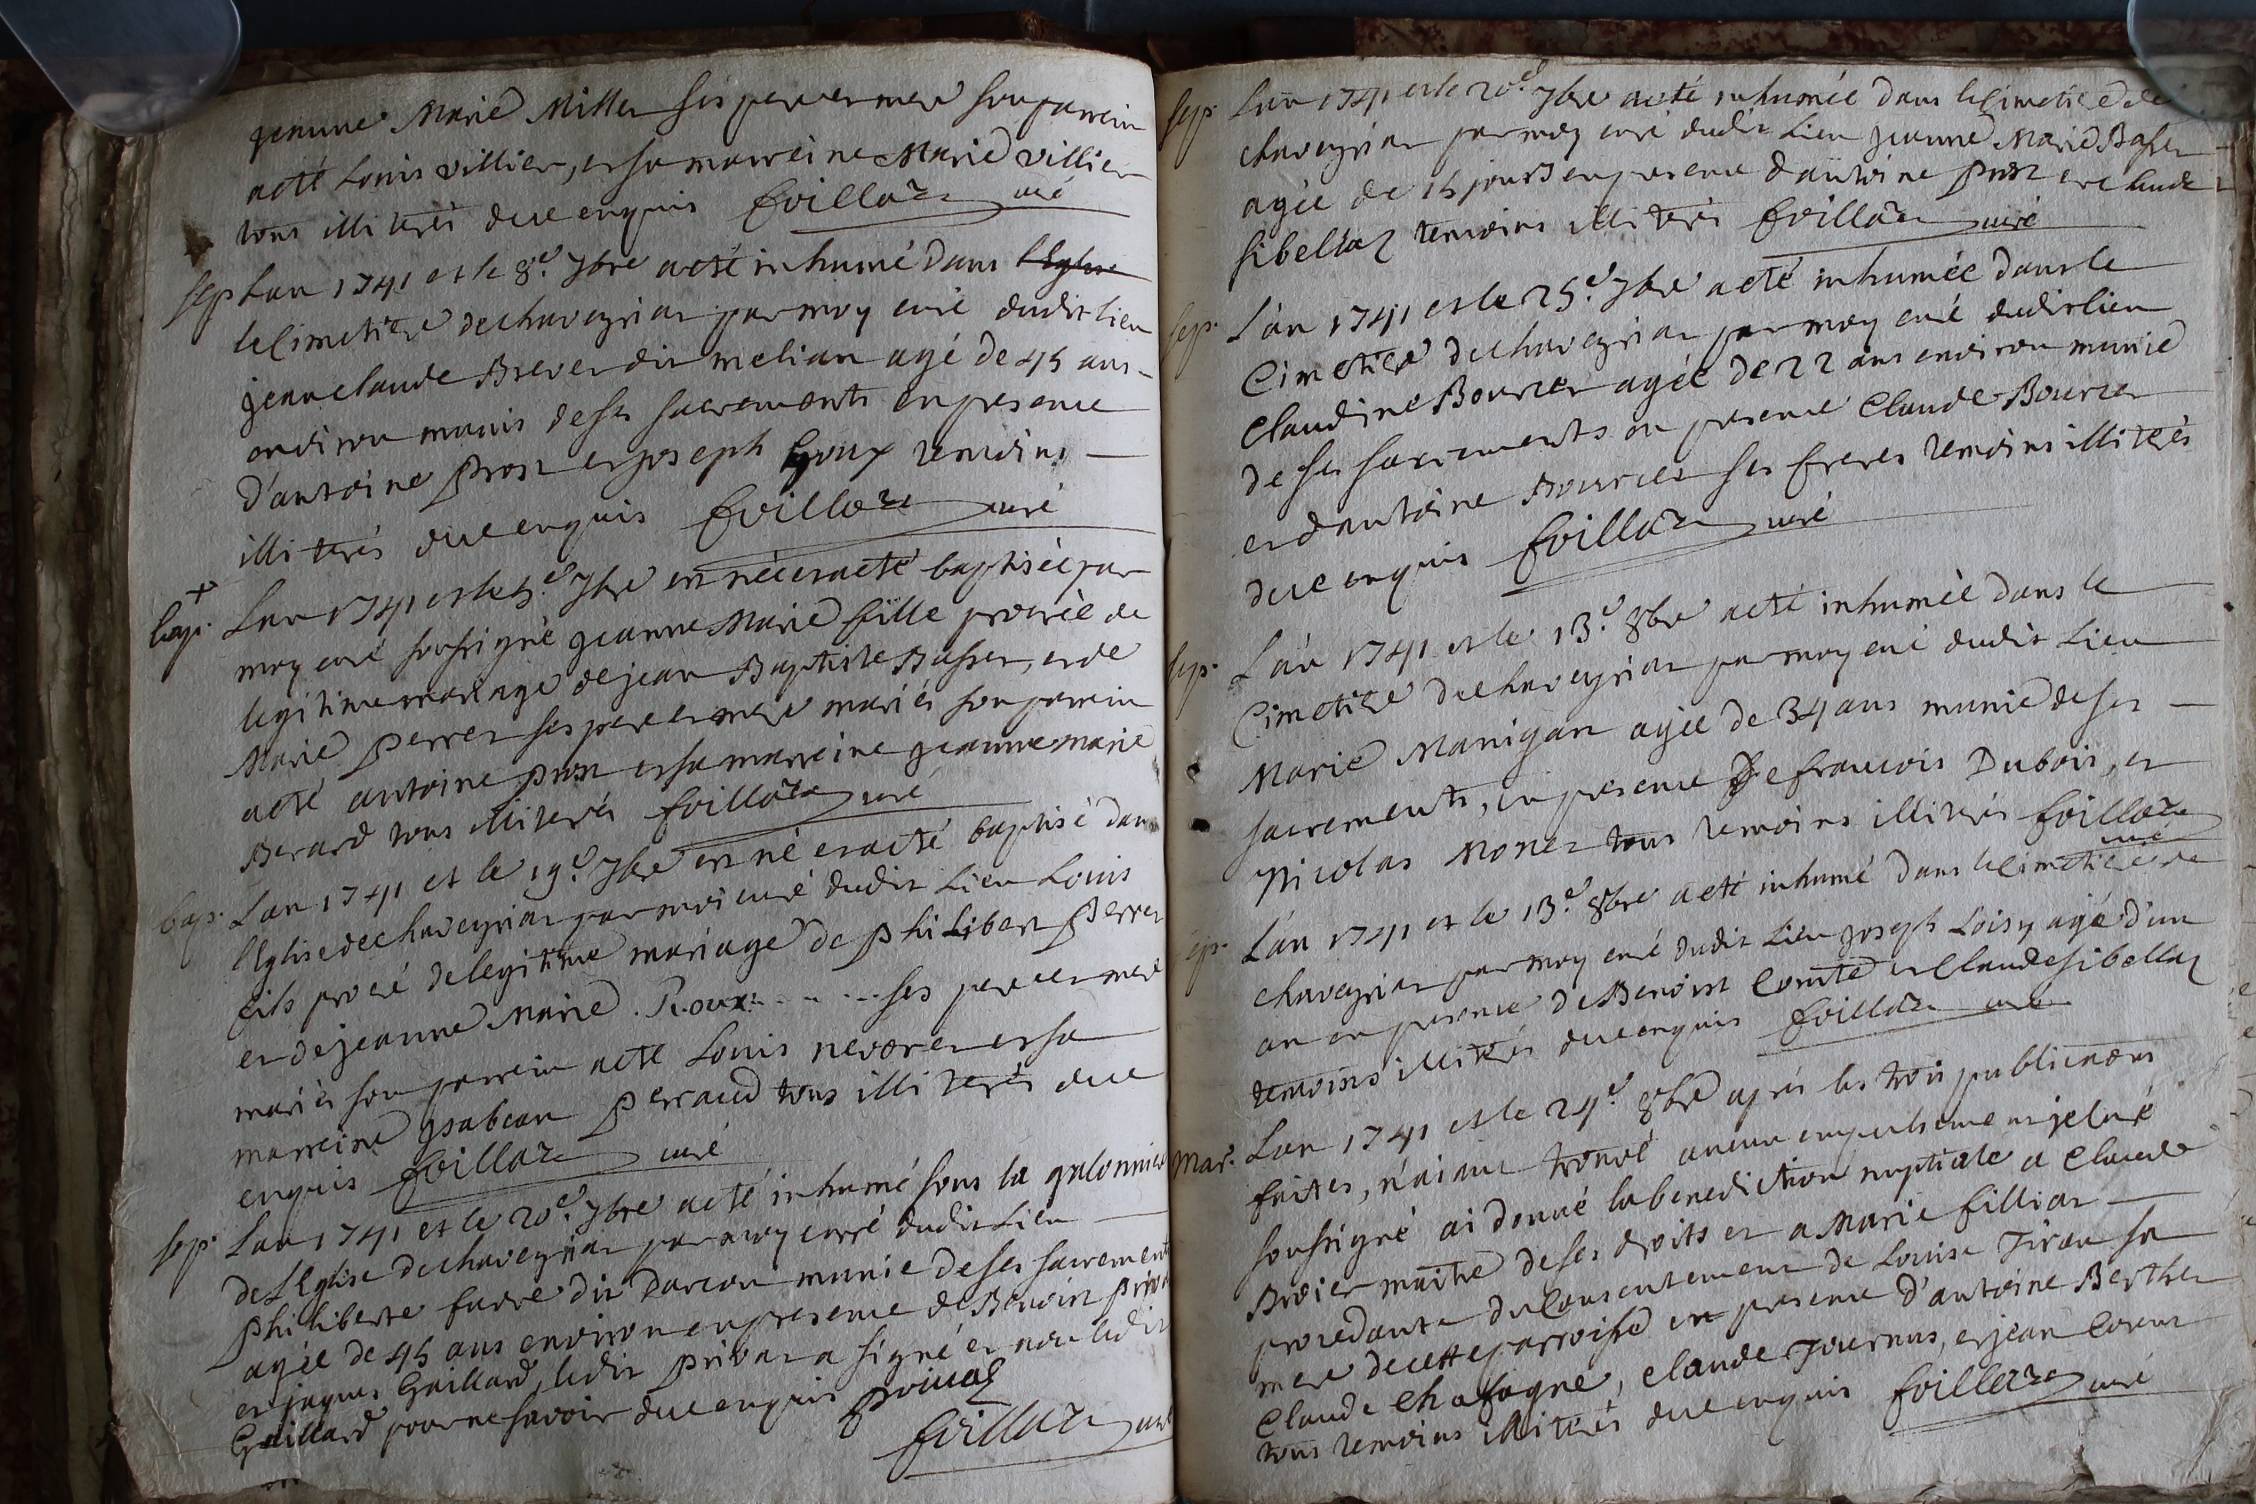 jeanne Marie Millet ses pere et mere son parrein
a eté Louis villier, et sa marreine Marie villier
tous illiterés de ce enquis foillaz curé
sep Lan 1741 et le 8.e 7bre a eté inhumé dans l'Eglise
le Cimetiere de chaveyriat par moy curé dudit lieu
jean claude Brevet dit melian agé de 45 ans
environ munis de ses sacrements en presence
d'antoine Prost et joseph Goux temoins
illiterés de ce enquis foillaz curé
bap. Lan 1741 et le 5.e 7bre est née et a eté baptisée par
moy curé soussigné jeanne Marie fille procréé de
legitime mariage de jean Baptiste Basset, et de
Marie Perret ses pere et mere mariés son parrein
a eté antoine prost et sa marreine jeanne marie
Berard tous illiterés foillaz curé
bap. Lan 1741 et le 19.e 7bre est né et a eté baptisé dans
l'Eglise de chaveyriat par moi curé dudit Lieu Louis
fils procréé de legitime mariage de philibert Perret
et de jeanne Marie . Roux. . . . . ses pere et mere
mariés son parrein a eté Louis nevoret et sa
marreine ysabeau Perraud tous illiterés de ce
enquis foillaz curé
sep. Lan 1741 et le 20.e 7bre a eté inhumé sous la galonniere
de l'Eglise de chaveyriat par moy curé dudit Lieu
philiberte favre dit Darcon munie de ses sacrements
agée de 45 ans environ en presence de Benoist privat
et jaques Gaillard, ledit privat a signé et non ledit
Gaillard pour ne savoir de ce enquis privat
foillaz curé
sep. Lan 1741 et le 20.e 7bre a eté inhumée dans le Cimetiere de
chaveyriat par moy curé dudit Lieu jeanne Marie Basset
agée de 15 jours en presence d'antoine prost et claude
sibellaz temoins illiterés foillaz curé
sep. L'an 1741 et le 25.e 7bre a eté inhumée dans le
Cimetiere de chaveyriat par moy curé dudit lieu
Claudine Bourcet agée de 22 ans environ munie
de ses sacrements en presence Claude Bourcet
et d'antoine Bourcet ses freres temoins illiterés
de ce enquis foillaz curé
sep. L'an 1741 et le 13.e 8bre a eté inhumée dans le
Cimetiere de chaveyriat par moy curé dudit Lieu
Marie Manigan agée de 34 ans munie de ses
sacrements, en presence De francois Dubois, et
Nicolas Monet tous temoins illiterés foillaz
curé
sep. L'an 1741 et le 13.e 8bre a eté inhumé dans le Cimetiere de
chaveyriat par moy curé dudit Lieu joseph Loisy agé d'un
an en presence de Benoist Comte et Claude sibellaz
temoins illiterés de ce enquis foillaz curé
Mar. Lan 1741 et le 24.e 8bre aprés les trois publications
faites, n'aiant trouvé aucun empechement je curé
soussigné ai donné la benediction nuptiale a Claude
Broier maitre de ses droits et a Marie filliat
procedante du Consentement de Louise Tiran sa
mere de cette parroisse en presence d'antoine Berthet
Claude Chatagne, Claude Tournus, et jean Coeur
tous temoins illiterés de ce enquis foillaz curé